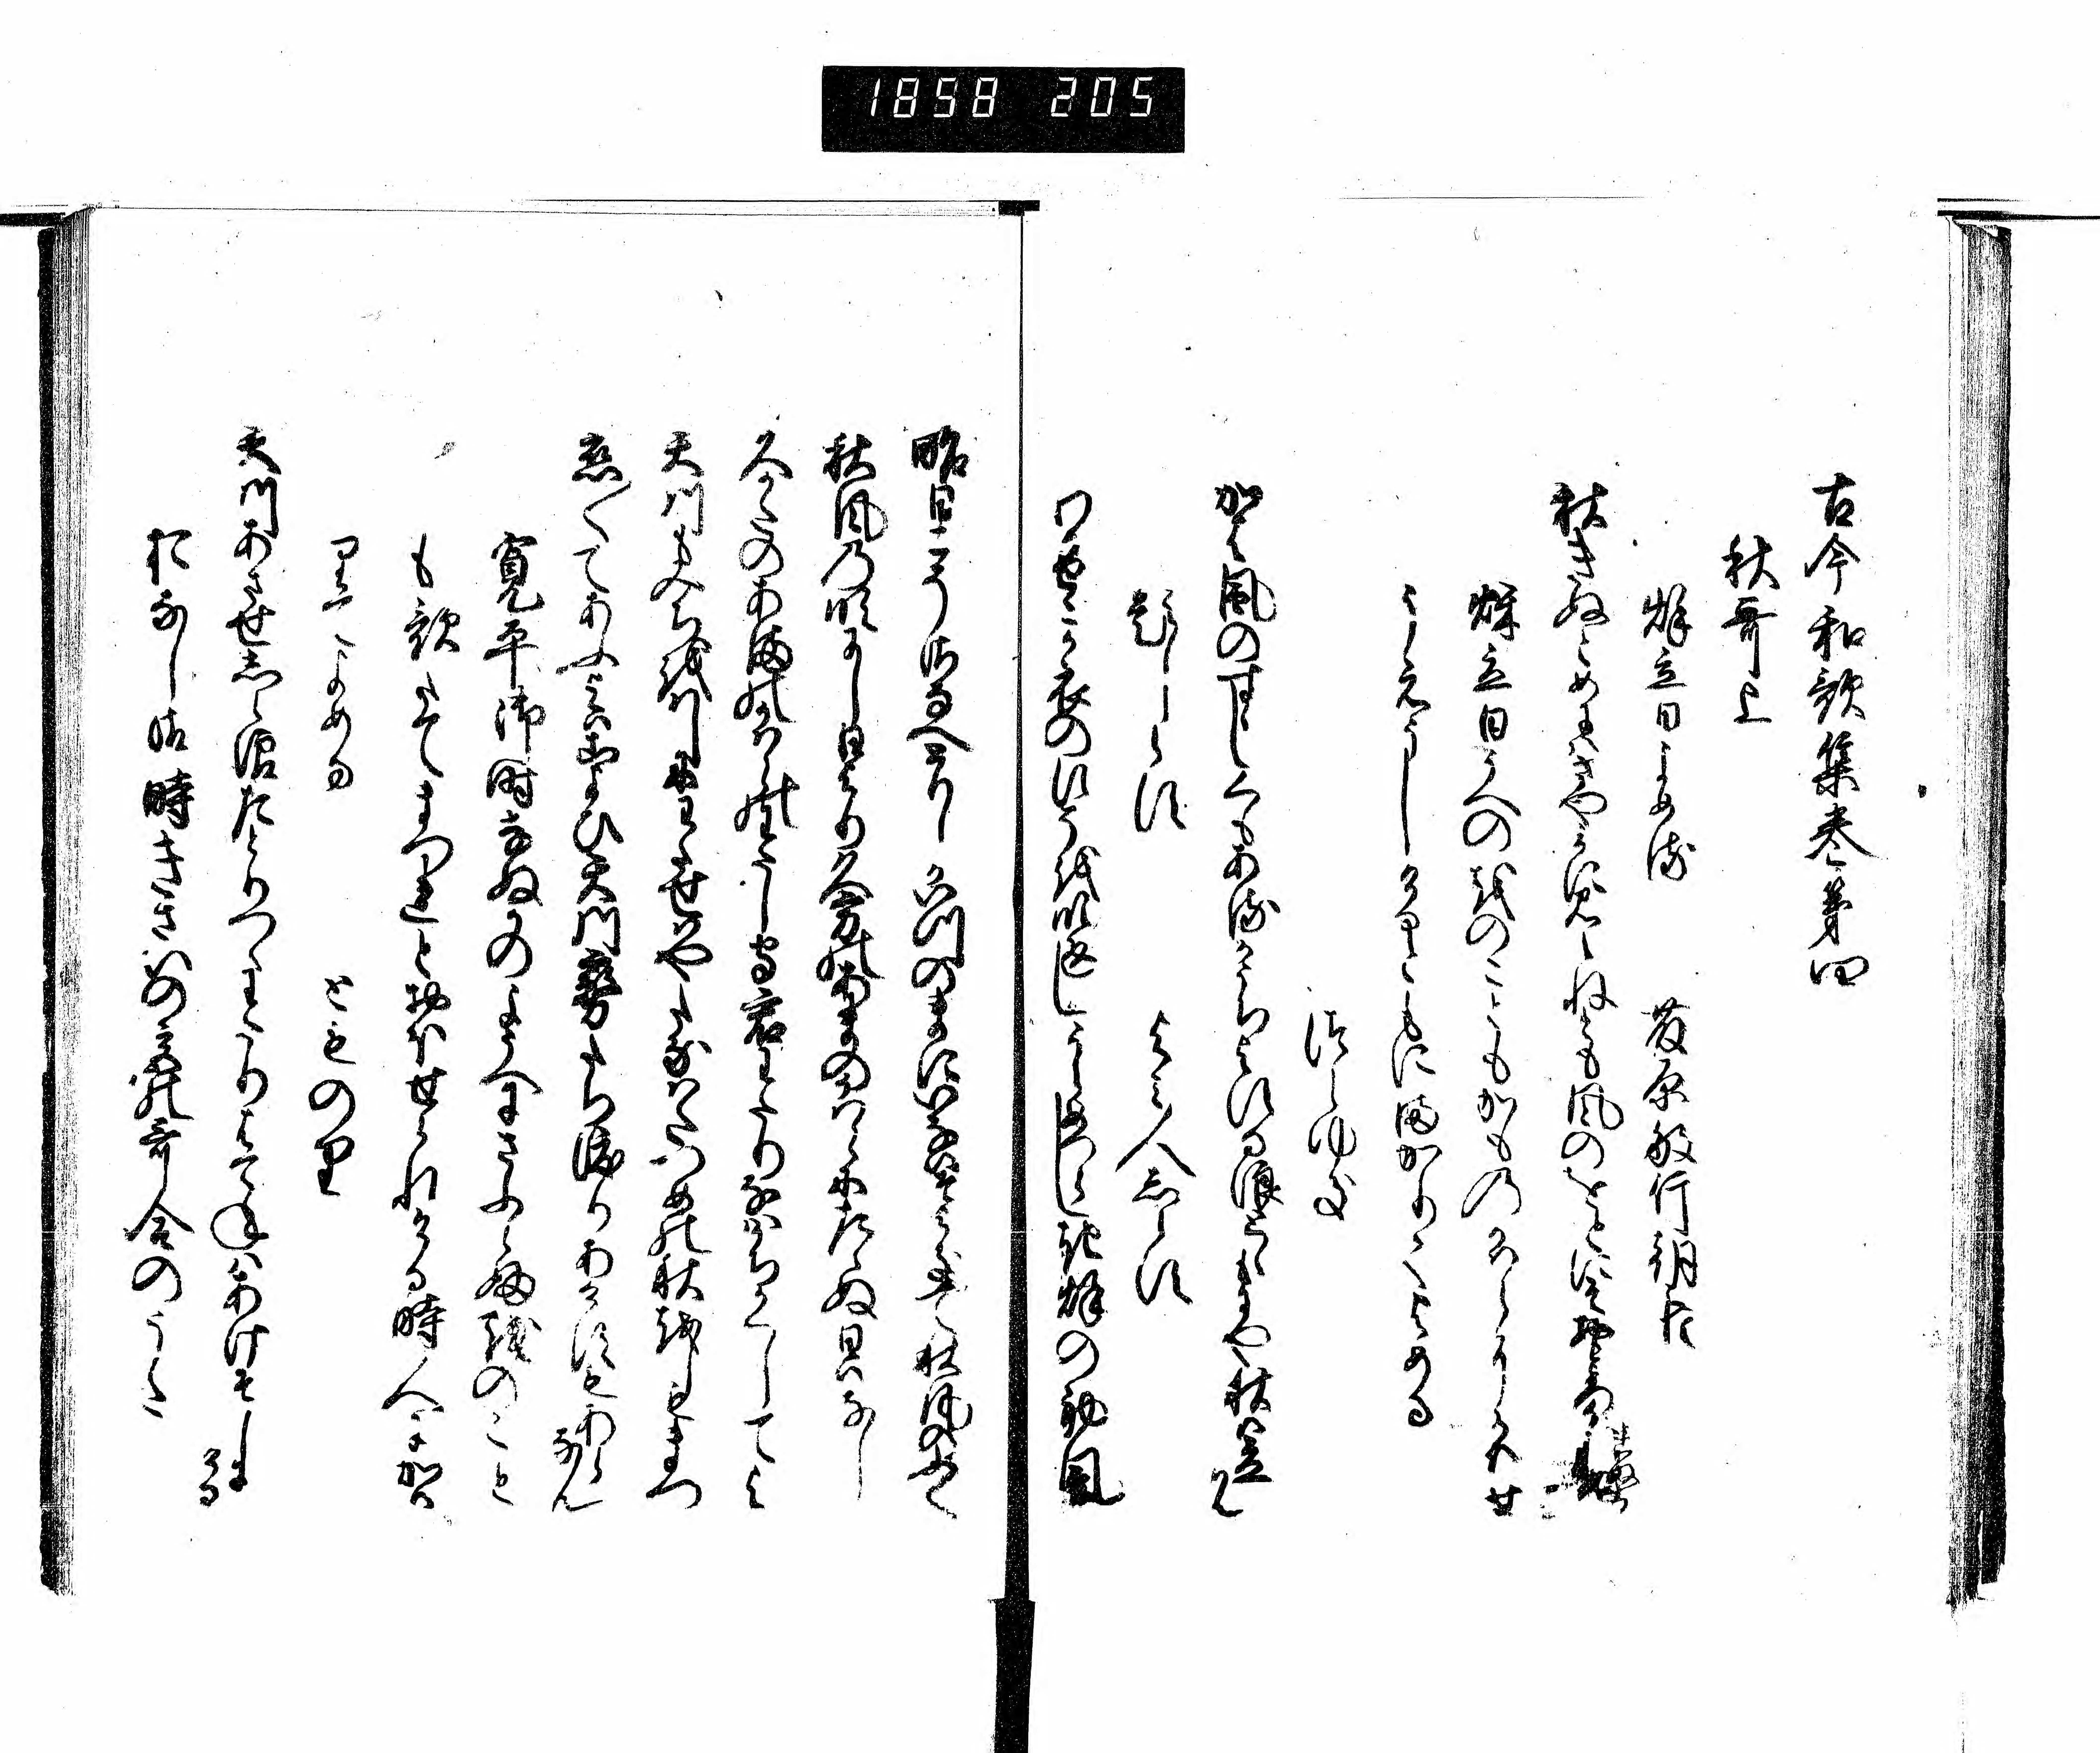 1858 205
古今和歌集巻第四
秋哥上
秌立日よめる
藤原敏行朝臣
秋きぬとめにはさやかに見えねとも風のをとにそおとろかれぬる
秌立日うへのをのこともかものかはらにかはせ
うえうしけるともにまかりてよめる
つらゆき
かは風のすゝしくもあるかうちよする浪とゝもにや秋は立らん
題しらす
よみ人しらす
わかせこか衣のすそを吹返しうらめつらしき秌の初風
昨日こそさなへとりしかいつのまにいなはそよきて秋風のふく
秋風の吹にし日より久方のあまのかはらにたゝぬ日はなし
久かたのあまのかはらのわたしもり君わたりなはかちかくしてよ
天川もみちをはしにわたせはやたなはたつめの秋をしもまつ
恋〱てあふ夜はこよひ天川霧たち渡りあけすもあらなん
寛平御時なぬかのようへにさふらふをのこと
も歌たてまつれとおほせられける時人にかは
りてよめる
とものり
天川あさせしら浪たとりつゝわたりはてねはあけそしにける
おなし御時きさいの宮の哥合のうた